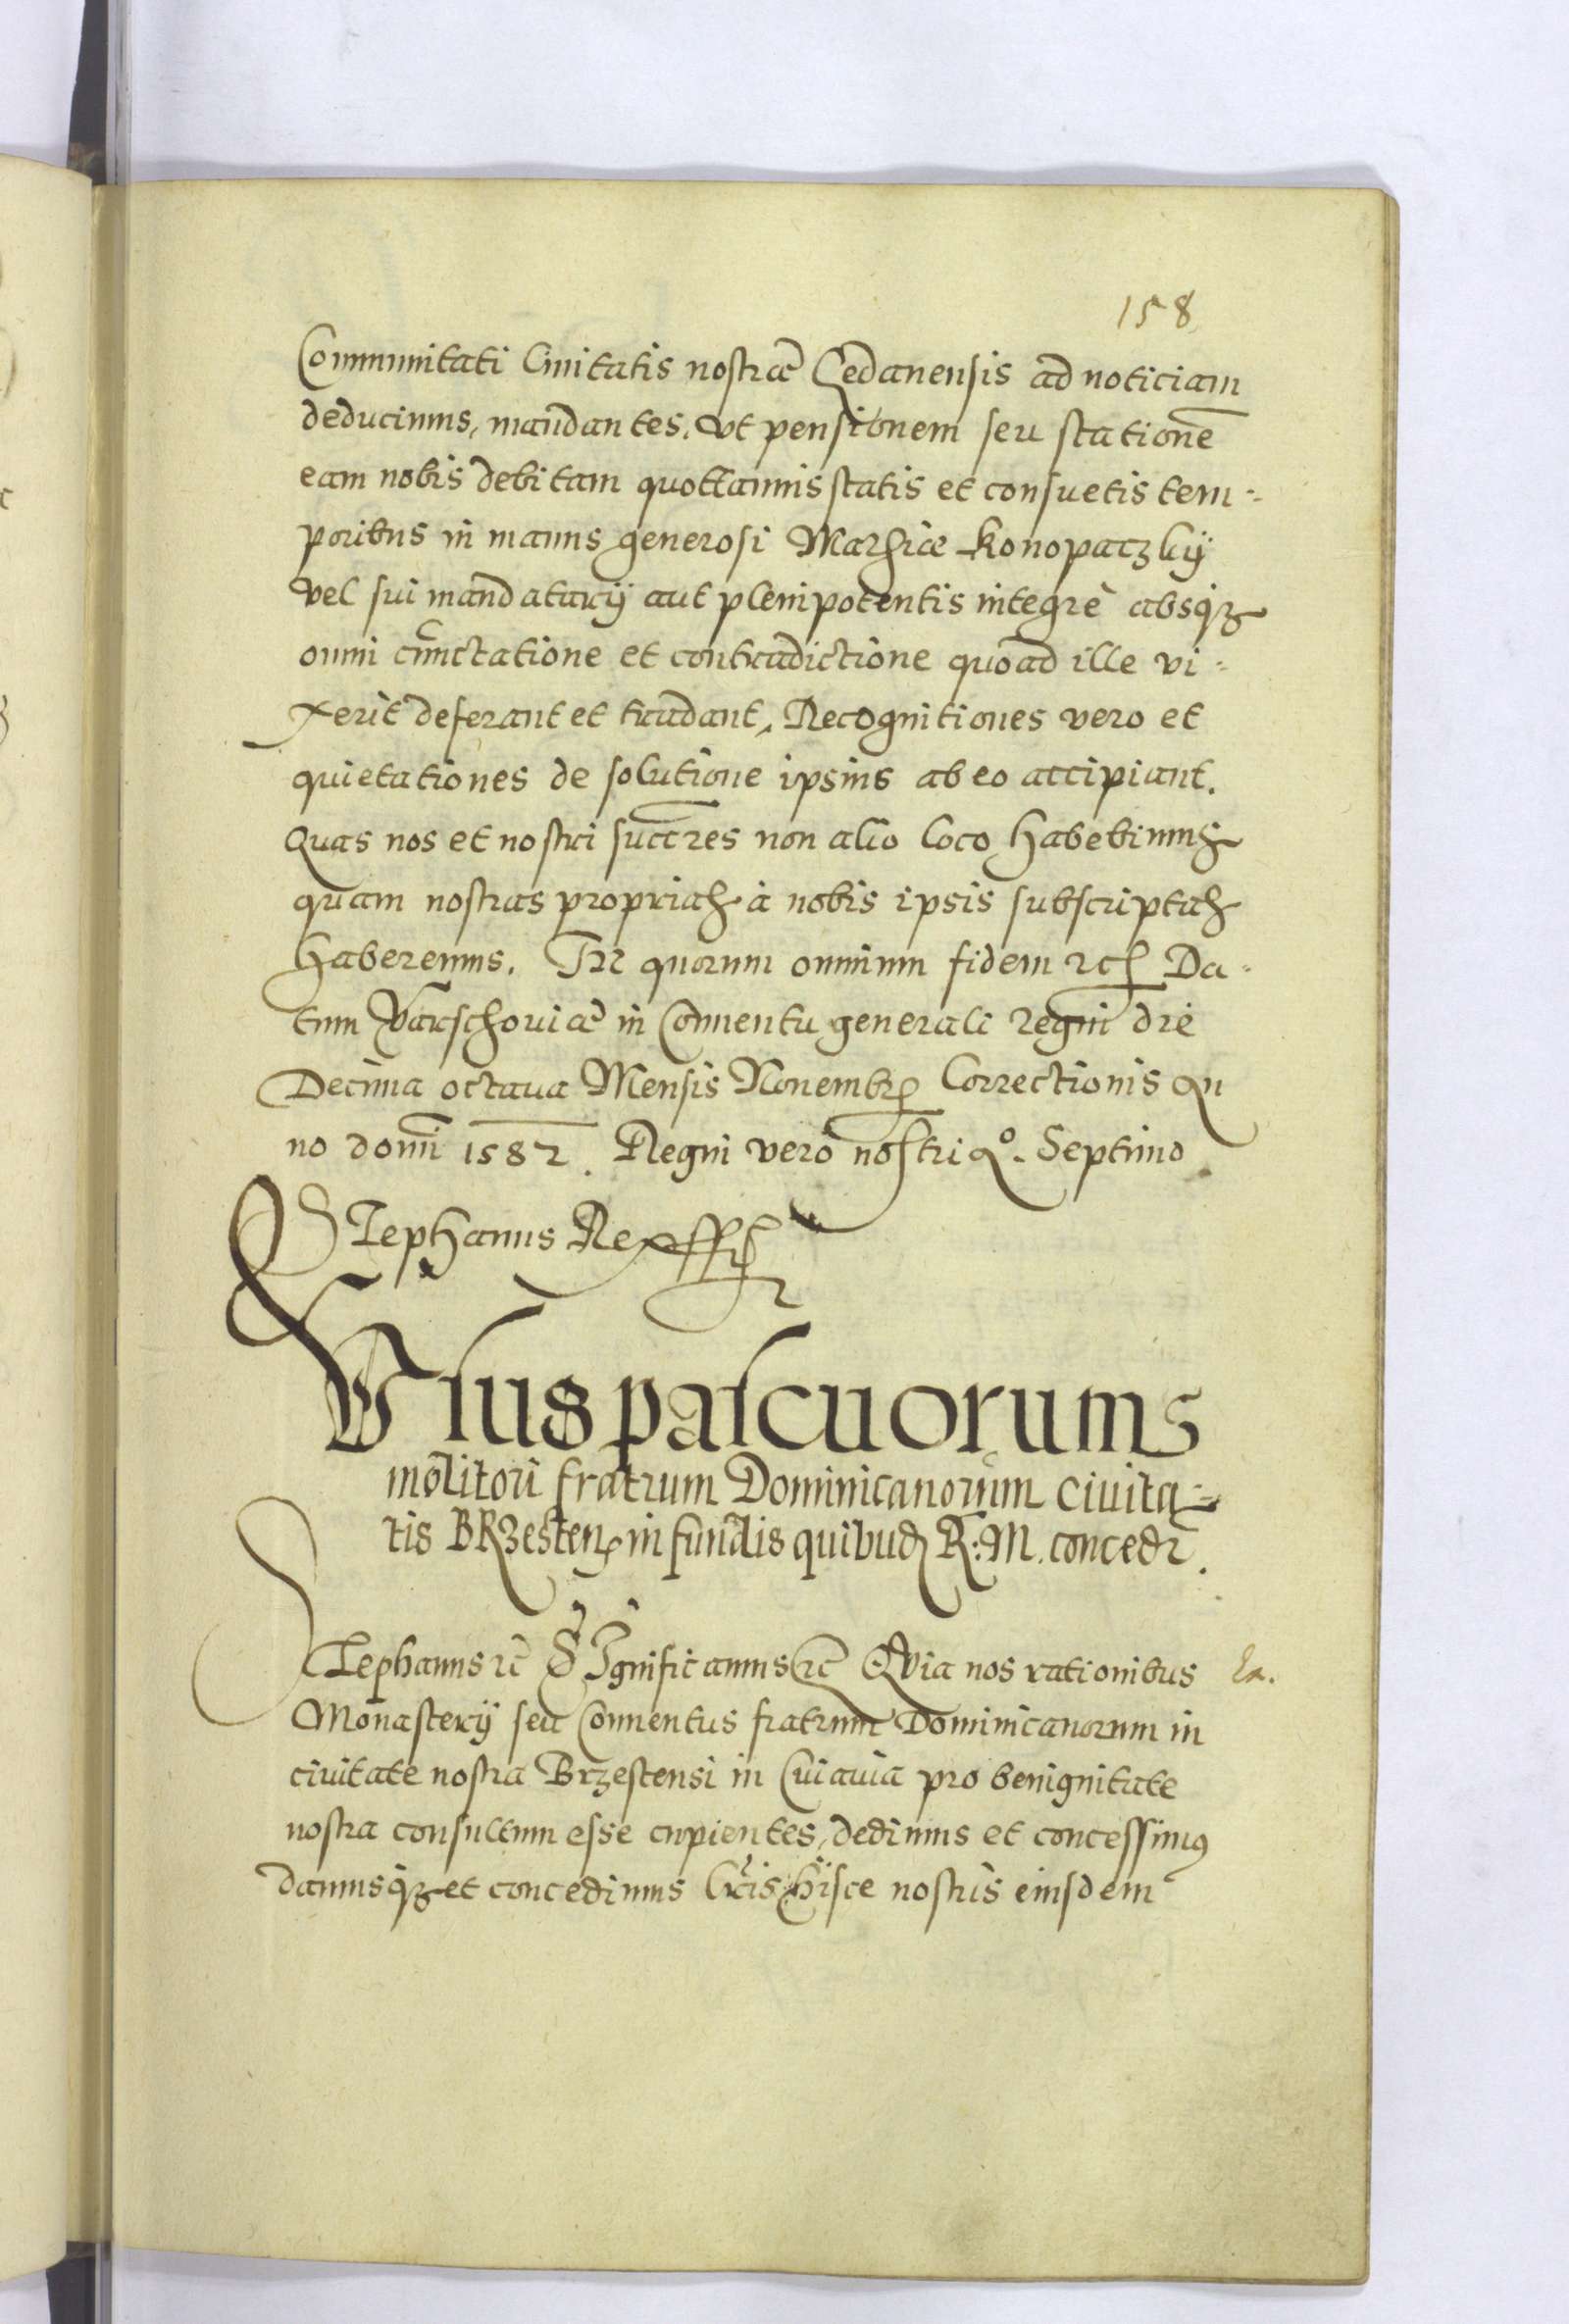 158
Communitati Civitatis nostræ Gedanensis ad noticiam
deducimus, mandantes. Vt pensionem seu stationē
eam nobis debitam quottannis statis et consuetis tem-
poribus in manus generosi Mathiæ Konopatzkij
vel sui mandatarij aut plenipotentis integrè absqꝫ
omni cunctatione et contradictione quoad ille vi-
xerit deferant et tradant, Recognitiones vero et
quietationes de solutione ipsius ab eo accipiant.
Quas nos et nostri succres non alio loco habebimus
quam nostras proprias à nobis ipsis subscriptas
haberemus. In quorum omnium fidem ꝛc Da-
tum Varschoviæ in Conuentu generali regni die
Decima octaua Mensis Nouembr Correctionis An
no domi 1582. Regni vero nostri Ao. Septimo
Stephanus Rex ssp̃t
Vsus pascuorum
molitori fratrum Dominicanorum ciuita-
tis BRzesten in fundis quibusd R. M. concedr.
Stephanus ꝛc̃ SIgnificamus ꝛc̃ Quia nos rationibus
Monasterij seu Conuentus fratrum Dominicanorum in
ciuitate nostra Brzestensi in Cuiauia pro benignitate
nostra consultum esse cupientes, dedimus et concessimus
damusqꝫ et concedimus lr̃is hisce nostris eiusdem